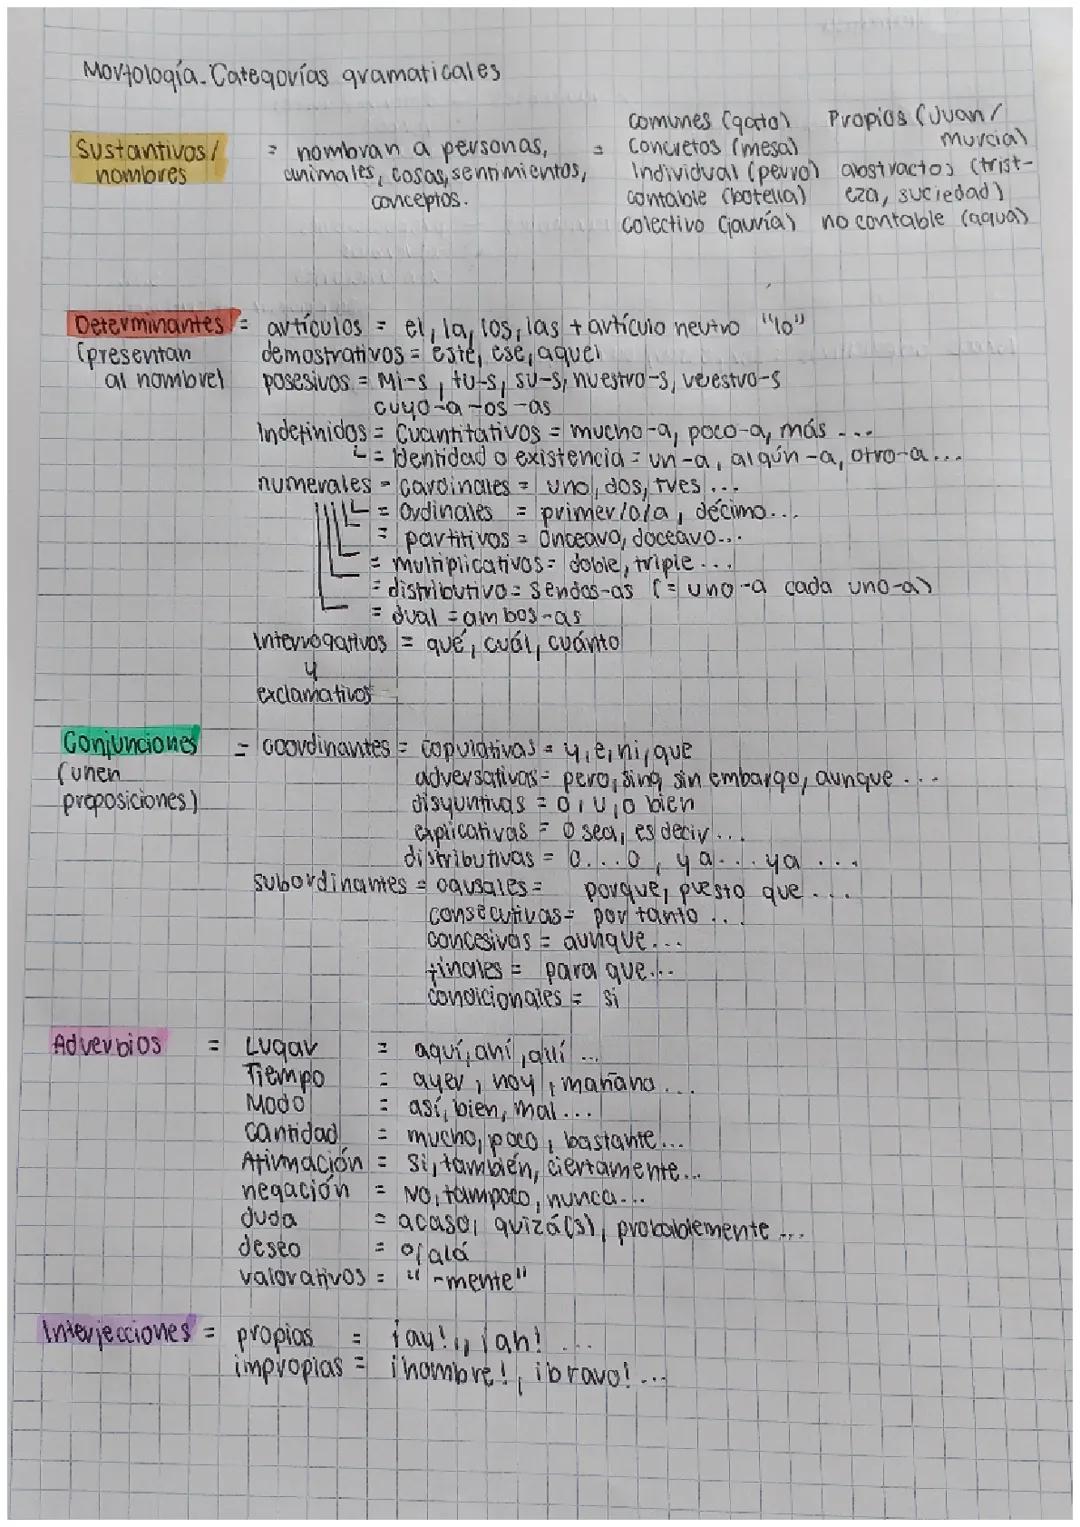 Morfología. Categorías gramaticales
Sustantivos/ nombres = nombran a personas, animales, cosas, sentimientos, conceptos. =
comunes (gato) Propios (Juan/ murcia)
concretos (mesa)
Individual (perro) abstractos (trist-
contable (botella) eza, suciedad)
colectivo (jauría) no contable (agua)
Determinantes = artículos = el, la, los, las + artículo neutro "lo"
(presentan demostrativos = este, ese, aquel
al nombre) posesivos = Mi-s, tu-s, su-s, nuestro-s, vuestro-s
cuyo-a-os-as
Indefinidos = Cuantitativos = mucho-a, poco-a, más ...
= Identidad o existencia = un-a, algún-a, otro-a...
numerales = cardinales = uno, dos, tres ...
= Ordinales = primer/o/a, décimo...
= partitivos = onceavo, doceavo...
= multiplicativos = doble, triple ...
= distributivo = sendos-as (= uno-a cada uno-a)
= dual = ambos-as
interrogativos = qué, cuál, cuánto
y
exclamativos
Conjunciones = coordinantes = copulativas = y, e, ni, que
(unen adversativas = pero, sino, sin embargo, aunque ...
proposiciones) disyuntivas = o, u, o bien
explicativas = o sea, es decir ...
distributivas = o...o, ya... ya ...
subordinantes = causales = porque, puesto que ...
consecutivas = por tanto ...
concesivas = aunque ...
finales = para que...
condicionales = si
Adverbios = Lugar = aquí, ahí, allí ...
Tiempo = ayer, hoy, mañana ...
Modo = así, bien, mal ...
cantidad = mucho, poco, bastante ...
Afirmación = Si, también, ciertamente...
negación = No, tampoco, nunca...
duda = acaso, quizá(s), probablemente ...
deseo = ojalá
valorativos = "-mente"
Interjecciones = propias = ¡ay!, ¡ah! ...
impropias = ¡hombre!, ¡bravo! ...